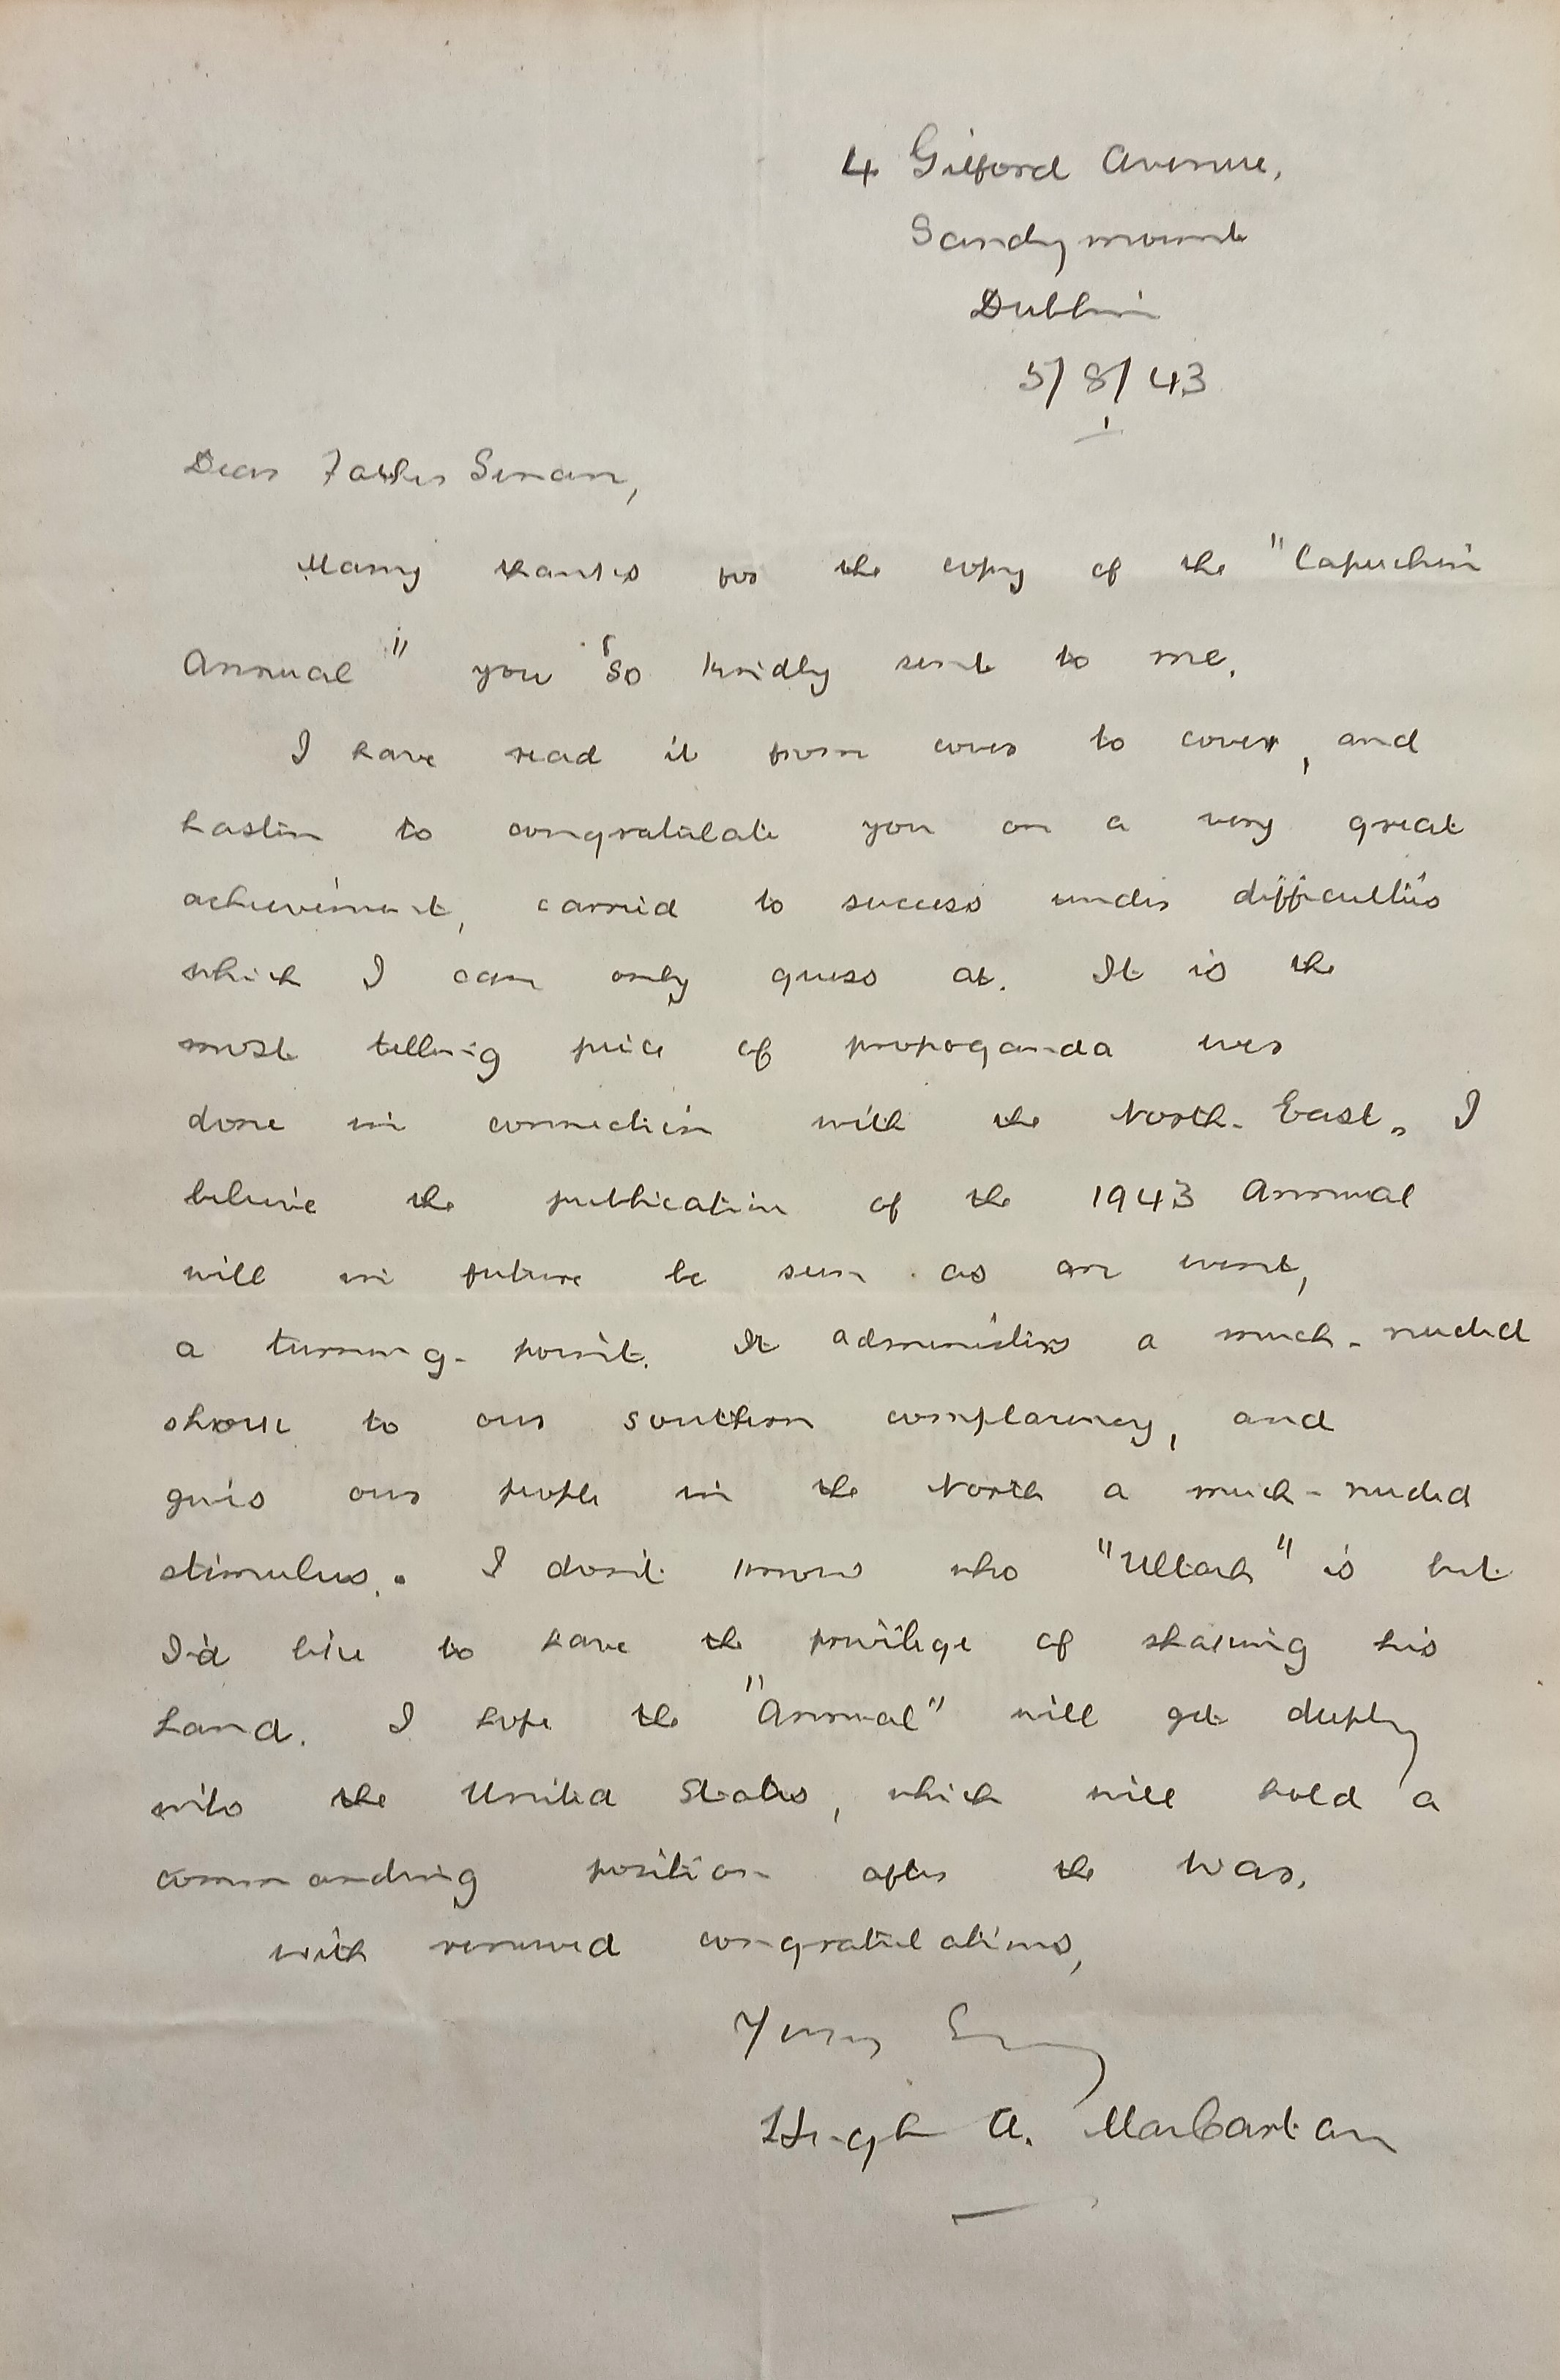 4 Gilford Avenue,
Sandymount
Dublin
5/8/43
Dear Father Senan,
Many thanks for the copy of the "Capuchin
Annual" you so kindly sent to me.
I have read it from cover to cover, and
hasten to congratulate you on a very great
achievement, carried to success under difficulties
which I can only guess at. It is the
most telling piece of propoganda ever
done in connection with the North-East. I
believe the publication of the 1943 Annual
will in future be seen as an event,
a turning-point. It administers a much-needed
shock to our southern complacency, and
gives our people in the North a much-needed
stimulus. I don't know who "Ultach" is but
I'd like to have the privilege of shaking his
hand. I hope the "Annual" will get deeply
into the United States, which will hold a
commanding position after the war.
With renewed congratulations,
Yours
Hugh A. MacCartan